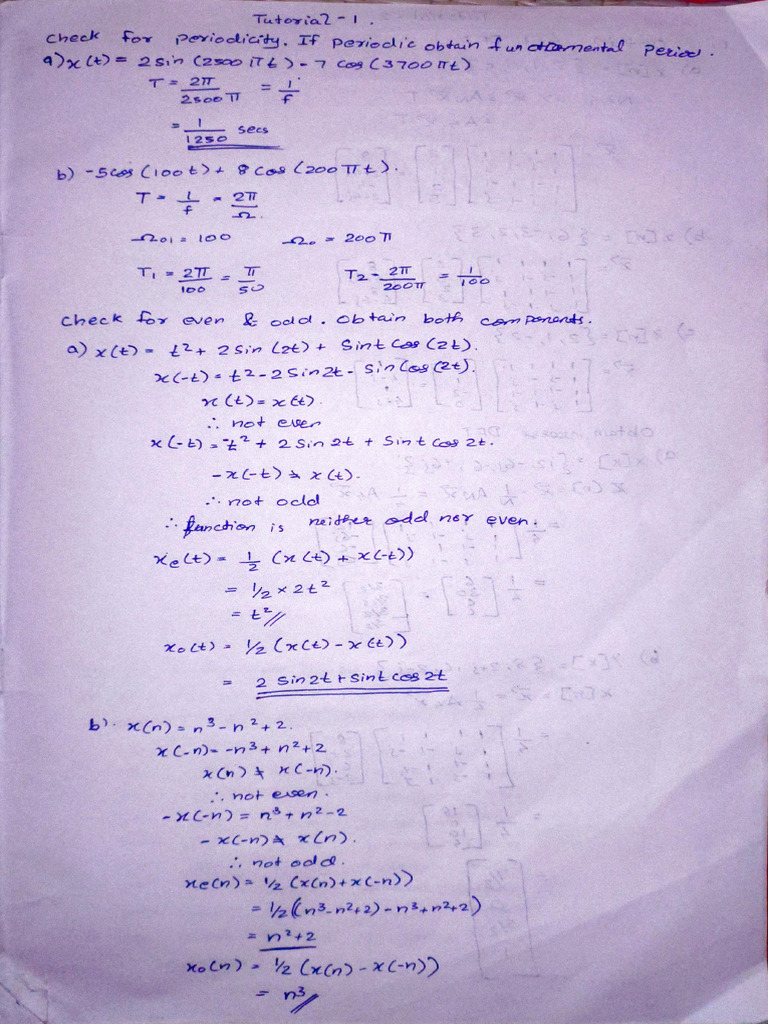 Tutorial - 1.
Check for periodicity. If periodic obtain fundamental period.
a) x(t) = 2 sin (2500 πt) - 7 cos (3700 πt)
T = 2π/2500π = 1/f
= 1/1250 secs
b) -5 cos (100t) + 8 cos (200πt).
T = 1/f = 2π/Ω.
Ω01 = 100 Ω0 = 200π
T1 = 2π/100 = π/50 T2 - 2π/200π = 1/100
Check for even & odd. Obtain both components.
a) x(t) = t² + 2 sin (2t) + Sint cos (2t).
x(-t) = t² - 2 sin 2t - sin cos (2t).
x(t) = x(t).
∴ not even
x(-t) = -t² + 2 sin 2t + Sint cos 2t.
-x(-t) ≠ x(t).
∴ not odd
∴ function is neither odd nor even.
xe(t) = 1/2 (x(t) + x(-t))
= 1/2 × 2t²
= t²//
xo(t) = 1/2 (x(t) - x(t))
= 2 sin 2t + sint cos 2t
b). x(n) = n³ - n² + 2.
x(-n) = -n³ + n² + 2
x(n) ≠ x(-n).
∴ not even.
-x(-n) = n³ + n² - 2
-x(-n) ≠ x(n).
∴ not odd.
xe(n) = 1/2 (x(n) + x(-n))
= 1/2 ((n³ - n² + 2) - n³ + n² + 2)
= n² + 2
xo(n) = 1/2 (x(n) - x(-n))
= n³//